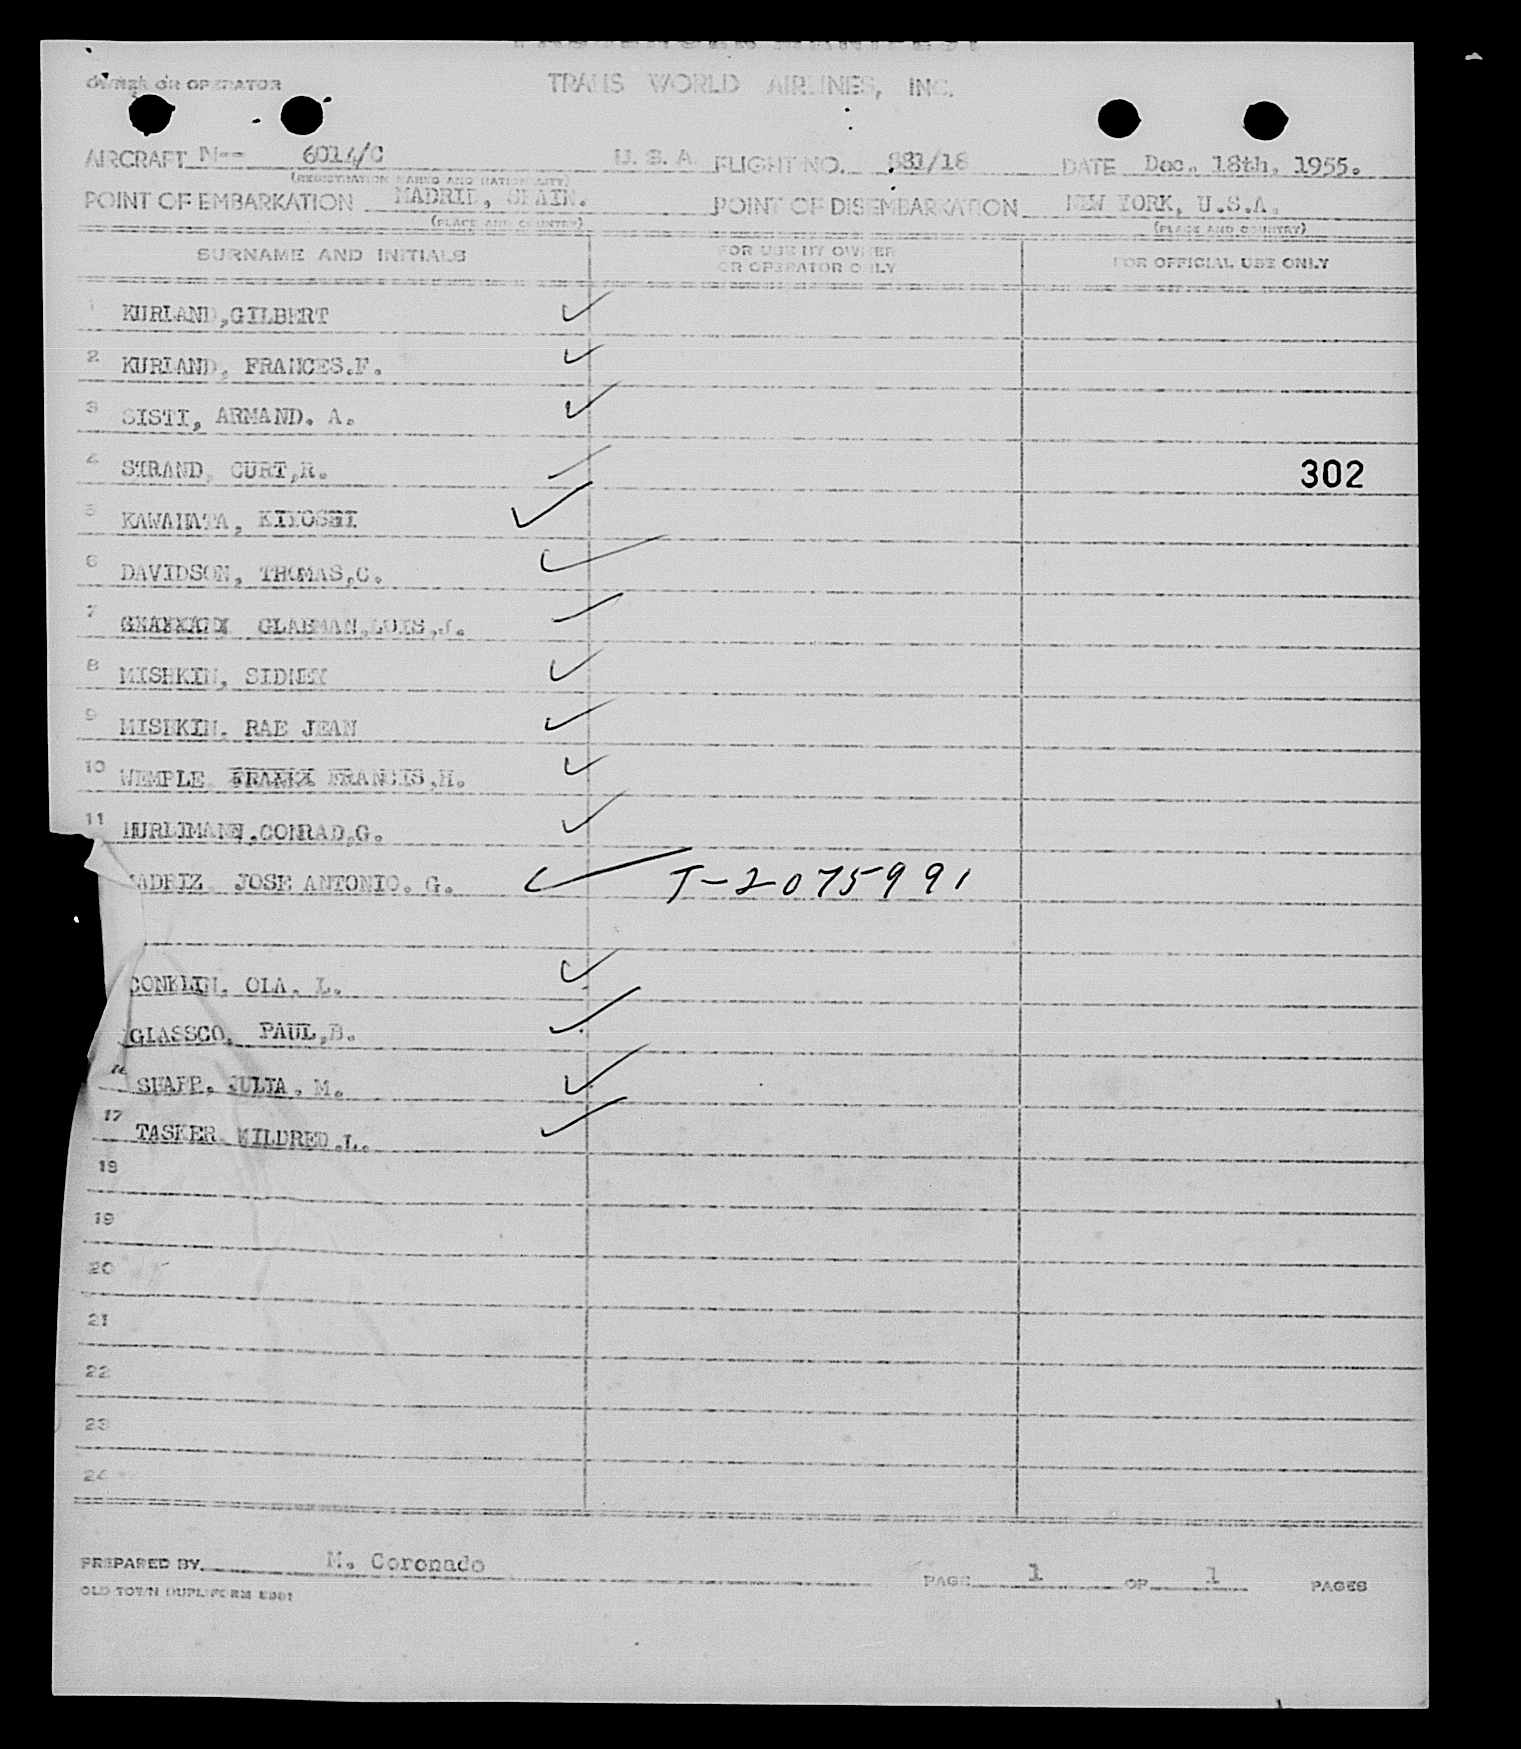 PASSENGER MANIFEST
OWNER OR OPERATOR TRANS WORLD AIRLINES, INC.
AIRCRAFT N-- 6014/C U. S. A. FLIGHT NO. 881/18 DATE Dec. 18th, 1955.
(REGISTRATION MARKS AND NATIONALITY)
POINT OF EMBARKATION MADRID, SPAIN. POINT OF DISEMBARKATION NEW YORK, U.S.A.
(PLACE AND COUNTRY) (PLACE AND COUNTRY)
SURNAME AND INITIALS FOR USE BY OWNER OR OPERATOR ONLY FOR OFFICIAL USE ONLY
1 KURLAND,GILBERT
2 KURLAND, FRANCES.F.
3 SISTI, ARMAND. A.
4 STRAND, CURT,R. 302
5 KAWAHATA, KIYOSHI
6 DAVIDSON, THOMAS,C.
7 GLABMAN,LOIS,J.
8 MISHKIN, SIDNEY
9 MISHKIN, RAE JEAN
10 WEMPLE, FRANCIS,H.
11 HURLIMANN,CONRAD,G.
MADRIZ, JOSE ANTONIO. G. T-2075991
CONKLIN, OLA. L.
GLASSCO, PAUL,B.
16 SHAPP, JULIA. M.
17 TASKER, MILDRED.L.
18
19
20
21
22
23
24
PREPARED BY M. Coronado PAGE 1 OF 1 PAGES
OLD TOWN DUPLIFORM